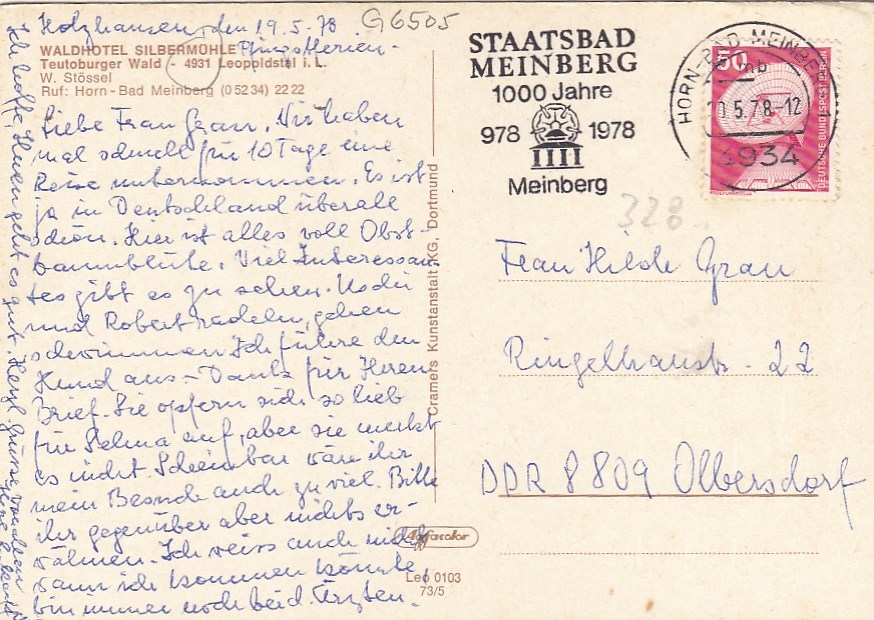 Holzhausen, den 19.5.78
G6505
Pfingstferien -
WALDHOTEL SILBERMÜHLE
Teutoburger Wald - 4931 Leopoldstal i. L.
W. Stössel
Ruf: Horn-Bad Meinberg (0 52 34) 22 22
Liebe Frau Grau, Wir haben
mal schnell für 10 Tage eine
Reise unternommen. Es ist
ja in Deutschland überall
schön. Hier ist alles voll Obst-
baumblüte. Viel Interessan-
tes gibt es zu sehen.
und Robert radeln, gehen
schwimmen. Ich führe den
Hund aus. - Dank für Ihren
Brief. Sie opfern sich so lieb
für Selma auf, aber sie merkt
es nicht. Scheinbar wäre ihr
mein Besuch auch zu viel. Bitte
ihr gegenüber aber nichts er-
wähnen. Ich weiss auch nicht
wann ich kommen könnte,
bin immer noch bei d. Ärzten.
Ich hoffe, Ihnen geht es gut. Herzl. Grüsse von allen
Cramers Kunstanstalt KG, Dortmund
Agfacolor
Leo 0103
73/5
STAATSBAD
MEINBERG
1000 Jahre
978 1978
Meinberg
HORN-BAD MEINBERG
mb
5.78-12
4934
50
DEUTSCHE BUNDESPOST BERLIN
328
Frau Hilde Grau
Ringelhainstr. 22
DDR 8809 Olbersdorf